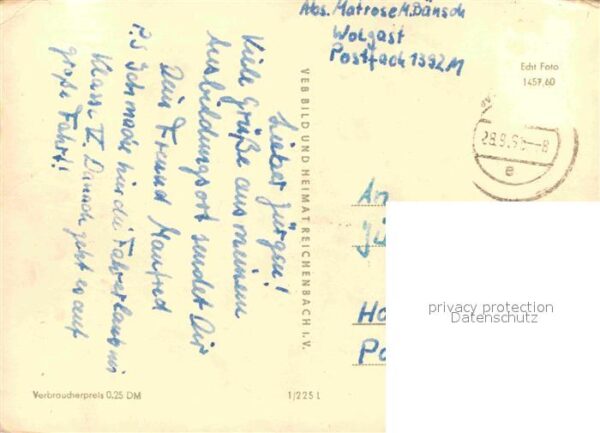 Abs. Matrose M. Dänsch
Wolgast
Postfach 1392 M
Echt Foto
1457,60
28.9.
-8
e
Lieber Jürgen!
Viele Grüße aus meinem
Ausbildungsort sendet Dir
Dein Freund Manfred
P.S Ich mache hier die Fahrerlaubnis
Klasse IV. Danach geht es auf
große Fahrt!
VEB BILD UND HEIMAT REICHENBACH I. V.
An
Jü
Ho
Po
privacy protection
Datenschutz
Verbraucherpreis 0,25 DM
1/225 L